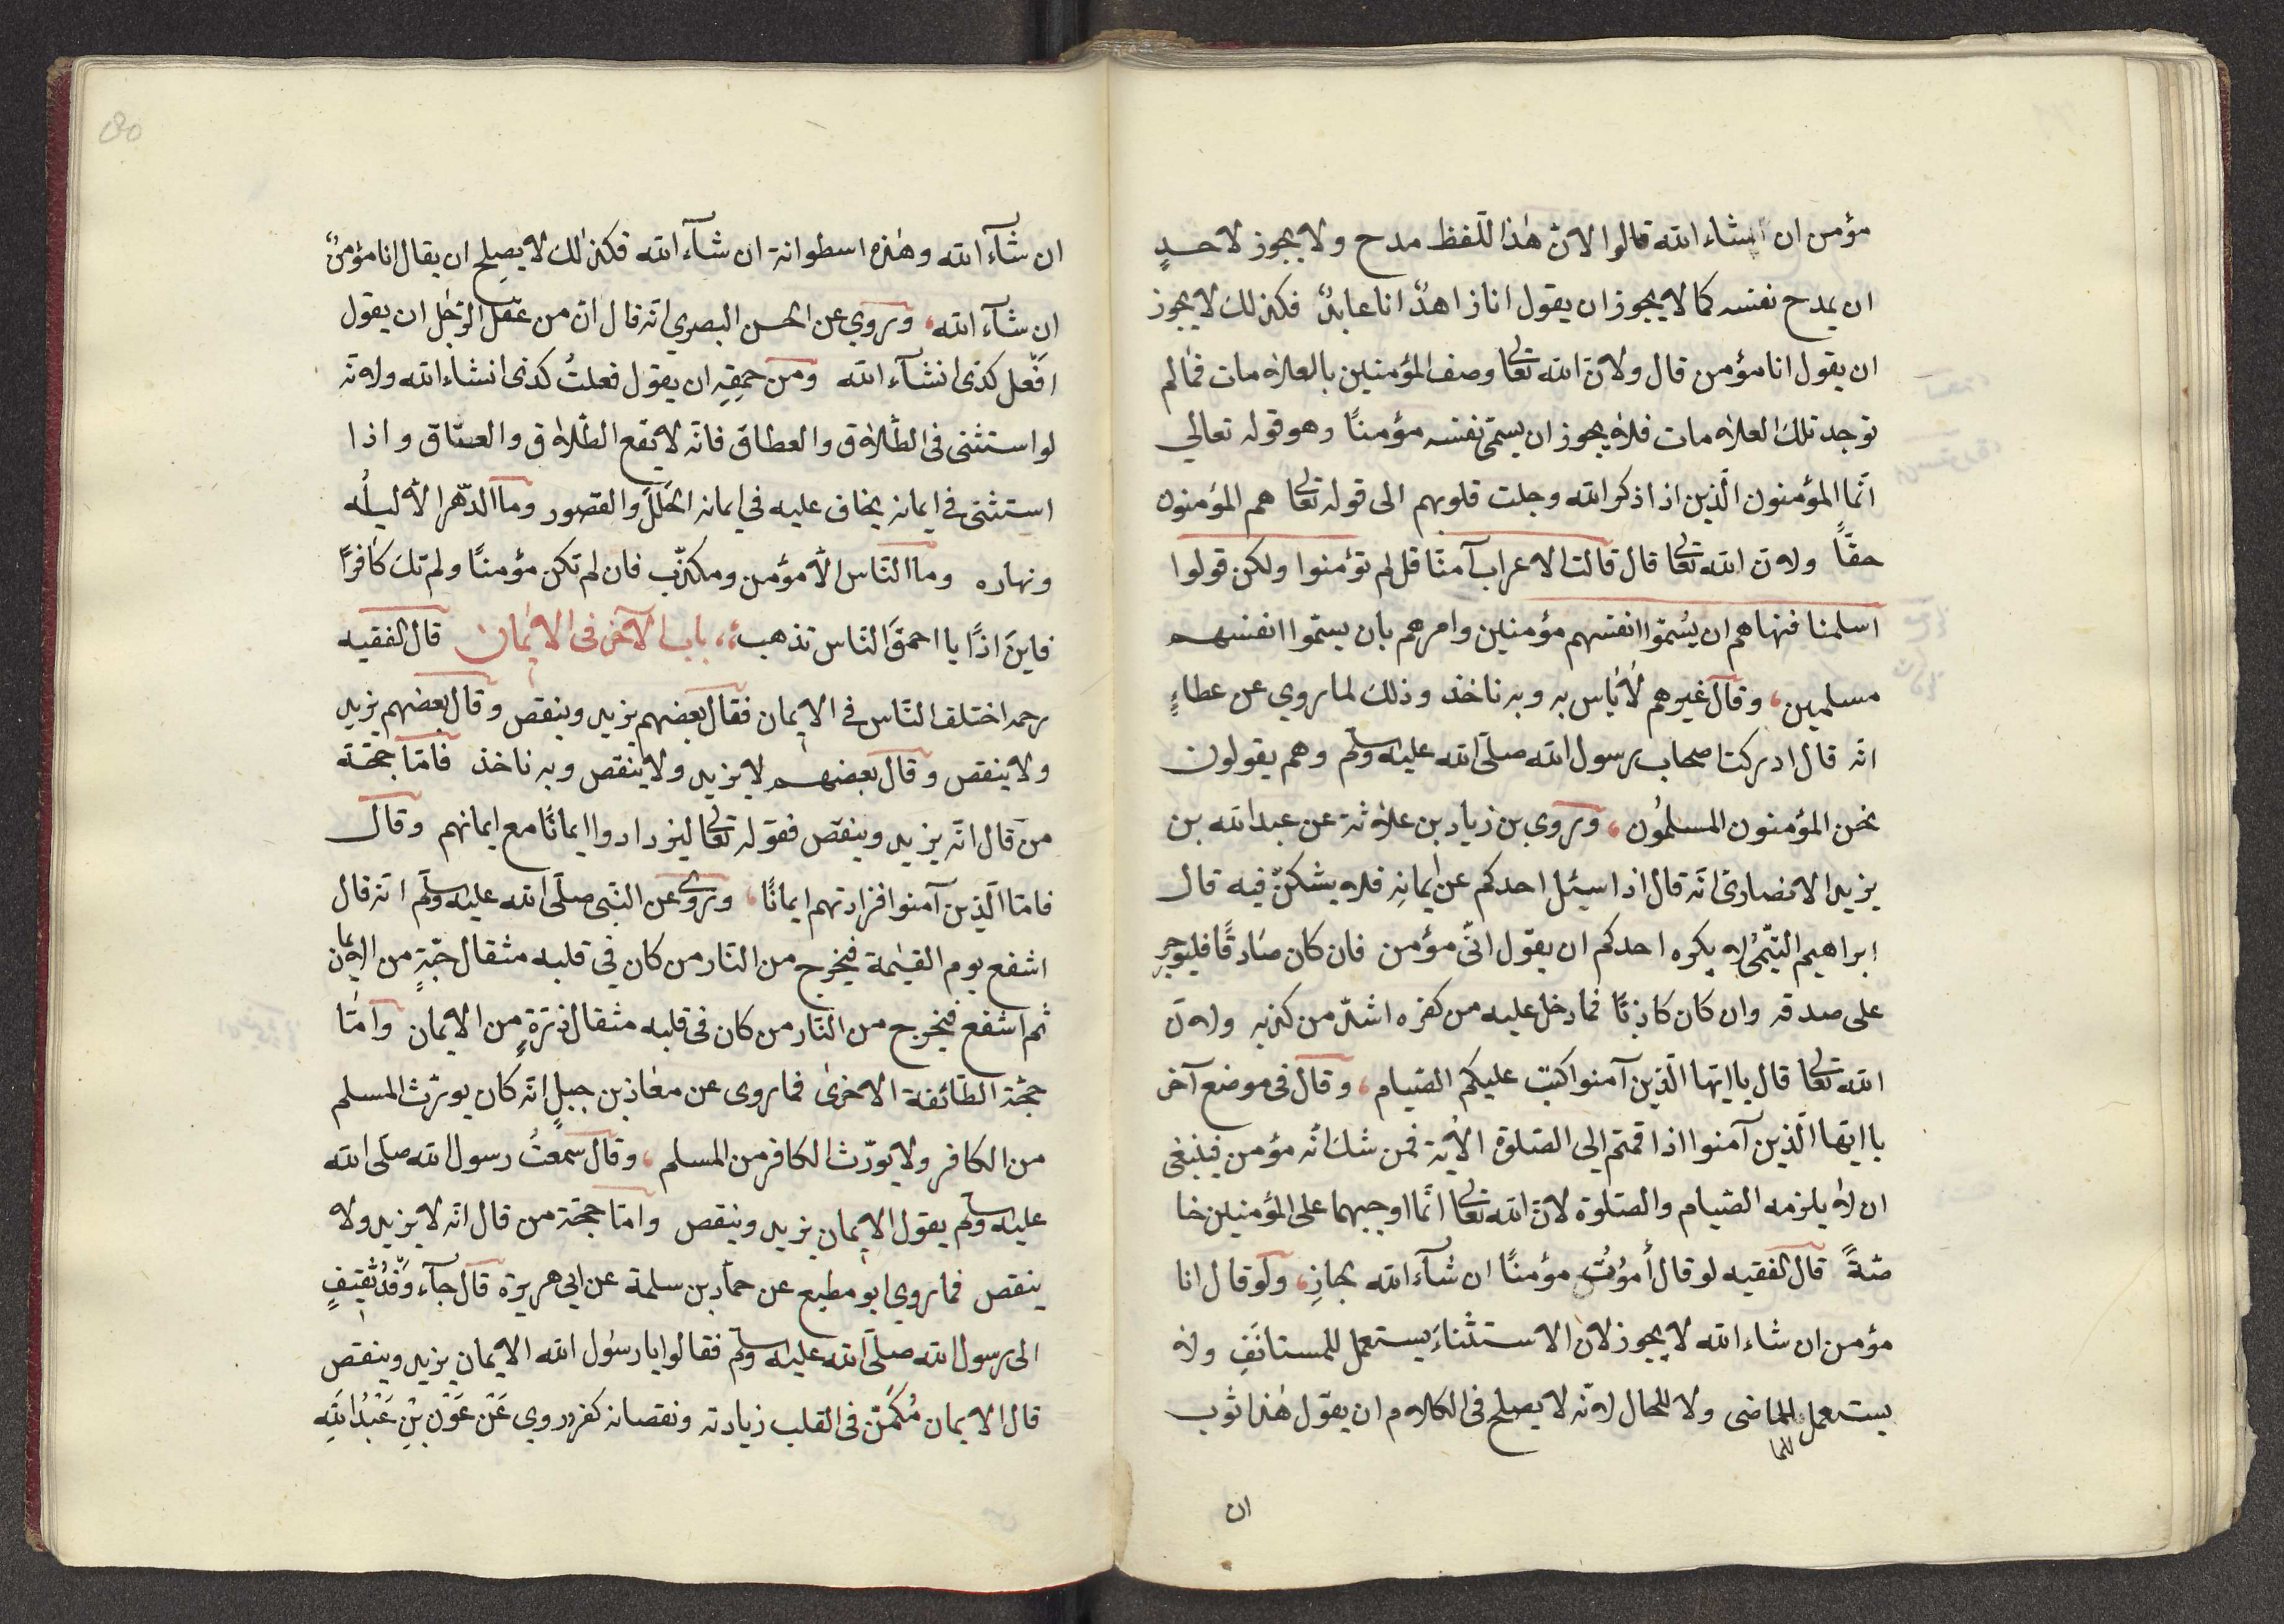 مؤمن ان انشاء الله قالوا لانّ هٰذا اللّفظ مدح ولا يجوز لاحدٍ
ان يمدح نفسه كما لا يجوز ان يقول انا زاهدٌ انا عابدٌ فكذلك لا يجوز
ان يقول انا مؤمن قال ولانّ الله تعالى وصف المؤمنين بالعلامات فما لم
توجد تلك العلامات فلا يجوز ان يسمّى نفسه مؤمنًا وهو قوله تعالي
انّما المؤمنون الّذين اذا ذكر الله وجلت قلوبهم الى قوله تعالى هم المؤمنون
حقًّا ولانّ الله تعالى قال قالت الاعراب آمنّا قل لم تؤمنوا ولكن قولوا
اسلمنا فنهاهم ان يُسمّوا انفسهم مؤمنين وامرهم بان يسمّوا انفسهم
مسلمين، وقال غيرهم لا بأس به وبه ناخذ وذلك لما روي عن عطاءٍ
انّه قال ادركت اصحاب رسول الله صلّى الله عليه وسلّم وهم يقولون
نحن المؤمنون المسلمُون، وروي بن زياد بن علاثة عن عبد الله بن
يزيد الانصارىّ انّه قال اذا سيئل احدكم عن ايمانِه فلا يشكنّ فيه قال
ابراهيم التيّمىُّ لا يكره احدكم ان يقول انّى مؤمن فان كان صَادقًا فليوجر
على صدقه وان كان كاذبًا فما دخل عليه من كفره اشدّ من كذبه ولانّ
الله تعالى قال يا ايّها الّذين آمنوا كتب عليكم الصّيام، وقال فى موضع آخر
يا ايّها الّذين آمنوا اذا قمتم الى الصّلوة الاٰية فمن شك انّه مؤمن فينبغى
ان لا يلزمه الصّيام والصّلوة لانّ الله تعالى انّما اوجبهما على المؤمنين خا
صّةً قال الفقيه لو قال أموُتُ مؤمنًا ان شآء الله بجازِ، ولو قال انا
مؤمن ان شاء الله لا يجوز لان الاستثناءَ يستعمل للمستانَفِ ولا
يستعمل للماضى ولا للحال لانّه لا يصلح فى الكلام ان يقول هٰذا ثوب
للما
ان
ان شآء الله وهٰذه اسطوانة ان شآء الله فكذٰلك لا يصلح ان يقال انا مؤمنٌ
ان شآء الله، وروي عن الحسن البصري انّه قال انّ من عقل الرّجُل ان يقول
افعل كذى انشآء الله ومن حمقِهِ ان يقول فعلتُ كذى انشاء الله ولانّه
لو استثنى فى الطّلاق والعطاق فانّه لا يقع الطّلاق والعتاق واذا
استثنى فى ايمانه يخاف عليه فى ايمانه الخلل والقصور وما الدّهر الاّ ليلُه
ونهاره وما النّاس الاّ مؤمن ومكذّب فان لم تكن مؤمنًا ولم تك كافرًا
فاينَ اذًا يا احمقَ النّاس تذهب، باب الآخر فى الايمان قال الفقيه
رحمه اختلف النّاس فى الايمان فقال بعضهم يزيد وينقص وقال بعضهم يزيد
ولا ينقص وقال بعضهم لا يزيد ولا ينقص وبه ناخذ فامّا حجّة
من قال انّه يزيد وينقص فقوله تعالى ليزدادوا ايمانًا مع ايمانهم وقال
فامّا الّذين آمنوا فزادتهم ايمانًا، وروى عن النّبى صلّى الله عليه وسلّم انّه قال
اشفع يوم القيٰمة فيخرج من النّار من كان فى قلبه مثقال حبّةٍ من الايمان
ثم اشفع فيخرج من النّار من كان فى قلبه مثقال ذرّةٍ من الايمان وامّا
حجّة الطّائفة الاخرىٰ فما روى عن معاذ بن جبلٍ انّه كان يورّث المسلم
من الكافر ولا يورّث الكافر من المسلم، وقال سمعتُ رسول الله صلّى الله
عليه وسلّم يقول الايمان يزيد وينقص وامّا حجّة من قال انّه لا يزيد ولا
ينقص فما روي ابو مطيع عن حمّاد بن سلمة عن ابى هريرة قال جآء وَفْدُ ثقيفٍ
الى رسول الله صلّى الله عليه وسلّم فقالوا يا رسُول الله الايمان يزيد وينقص
قال الايمان مُكمّن فى القلب زيادته ونقصانه كفر وروي عَن عَوْن بْنِ عَبْدِ اللّهِ